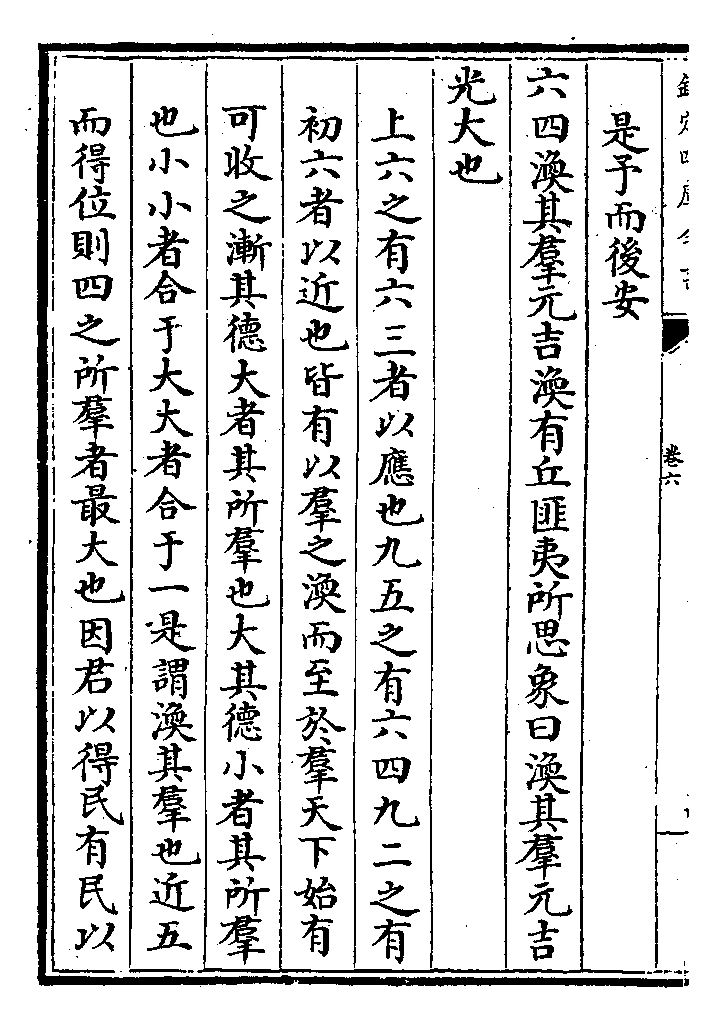 卷六
是予而後安
六四渙其羣元吉渙有丘匪夷所思象曰渙其羣元吉
光大也
上六之有六三者以應也九五之有六四九二之有
初六者以近也皆有以羣之渙而至於羣天下始有
可收之漸其德大者其所羣也大其德小者其所羣
也小小者合于大大者合于一是謂渙其羣也近五
而得位則四之所羣者最大也因君以得民有民以